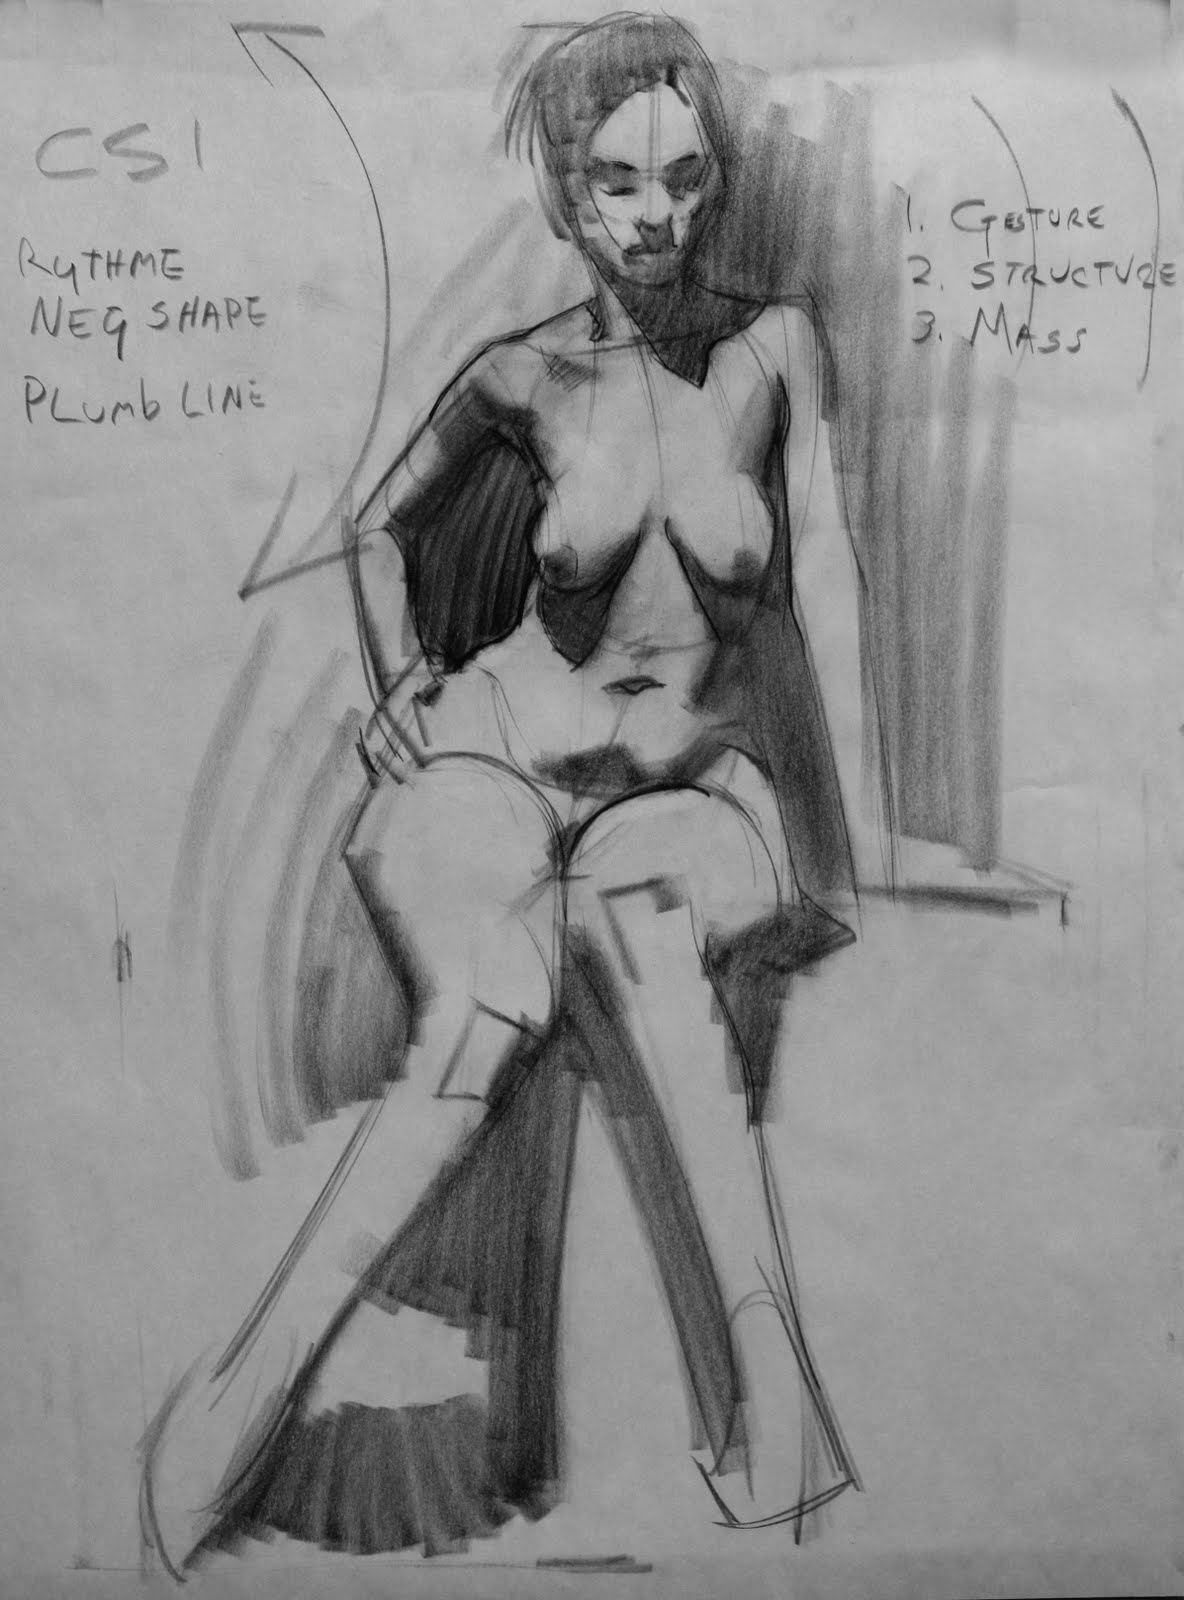 CSI
RYTHME
NEG SHAPE
PLUMB LINE
1. GESTURE
2. STRUCTURE
3. MASS